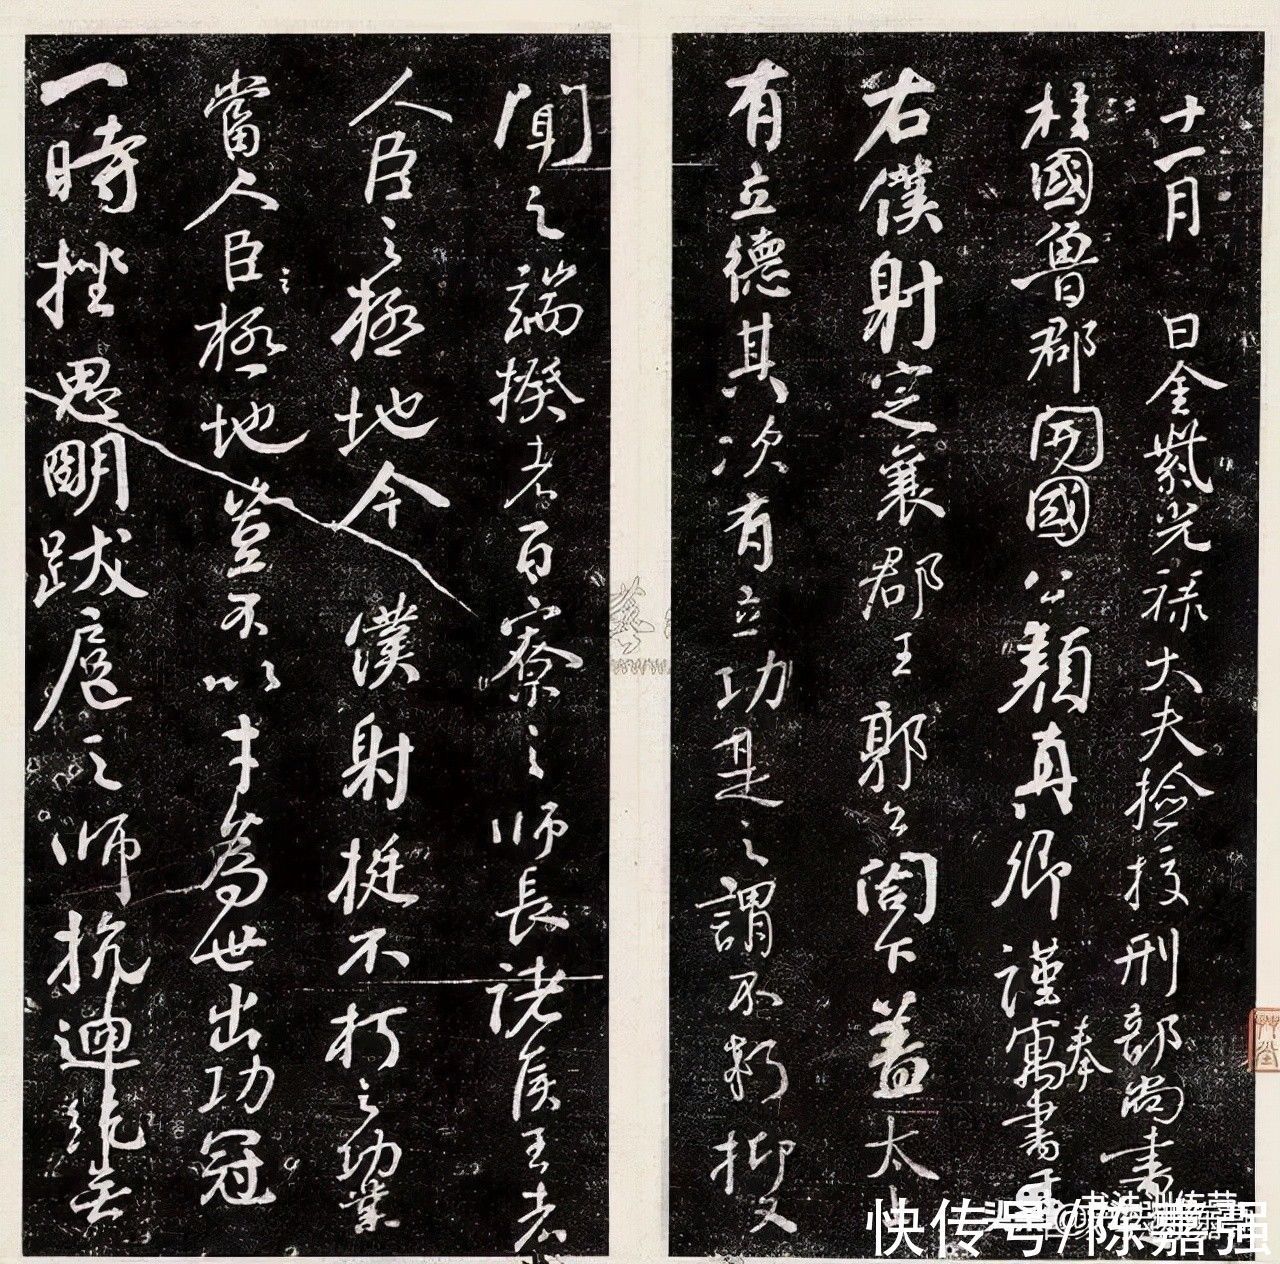 十一月 日金紫光禄大夫檢校刑部尚書
柱國魯郡開國公顏真卿謹奉寓書于
右僕射定襄郡王郭公閤下蓋太上
有立德其次有立功是之謂不朽抑又
聞之端揆者百寮之師長諸侯王者
人臣之極地今僕射挺不朽之功業
當人臣之極地豈不以才為世出功冠
一時挫思明跋扈之師抗迴紇無
快传号/陈嘉强